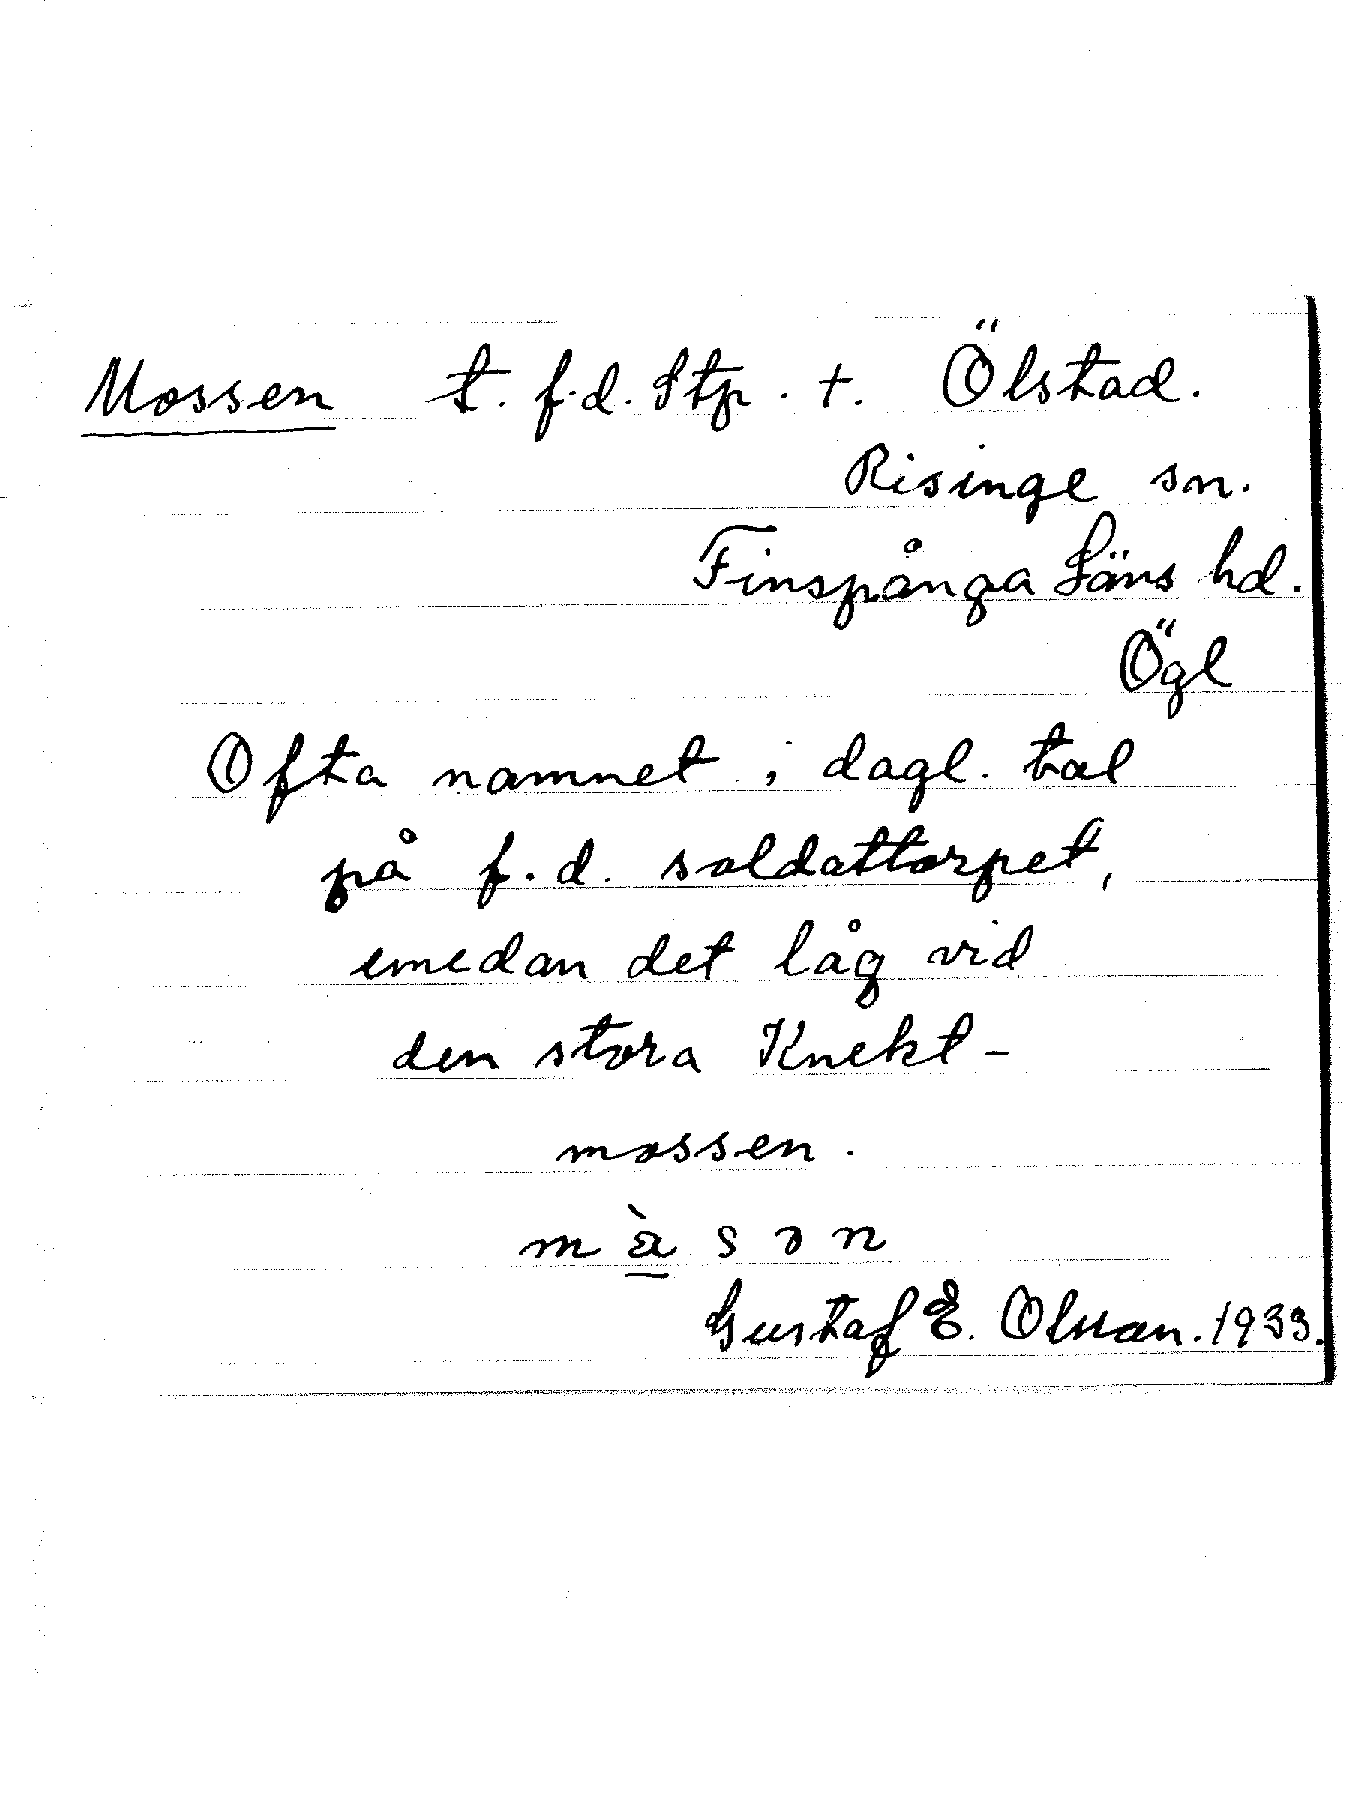 Mossen t. f.d. Stp. t. Ölstad.
Risinge sn.
Finspånga Läns hd.
Ögl
Ofta namnet i dagl. tal
på f.d. soldattorpet,
emedan det låg vid
den stora Knekt-
mossen.
m s ə n
Gustaf E. Olsson. 1933.